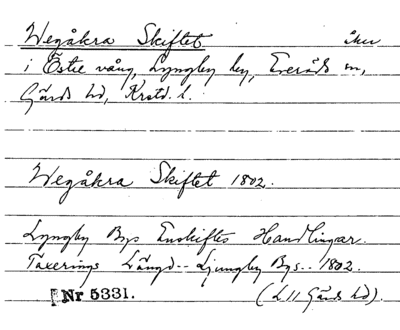 Wegåkra Skiftet åker
i Östre vång, Lyngby by, Everöds sn,
Gärds hd, Krstd. l.
Wegåkra Skiftet 1802.
Lyngby Bys Enskiftes Handlingar.
Taxerings Längd -- Ljungby Bys -- 1802.
Nr 5331. (L 11 Gärds hd).